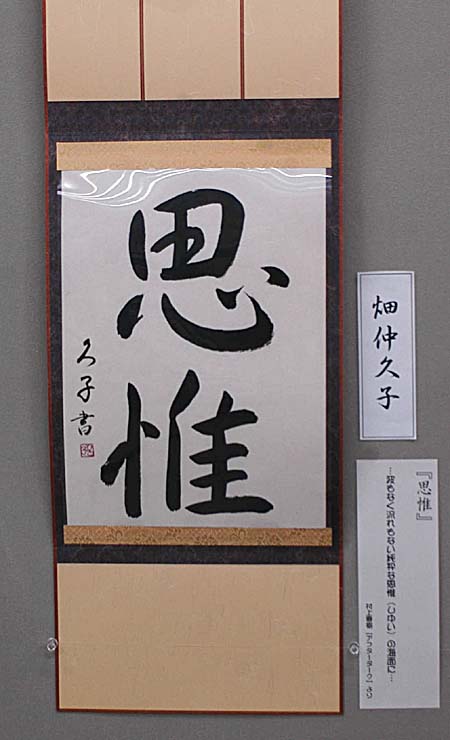 思惟
久子書
畑仲久子
『思惟』
…波もなく流れもない純粋な思惟(しゆい)の海面に…
村上春樹「アフターダーク」より